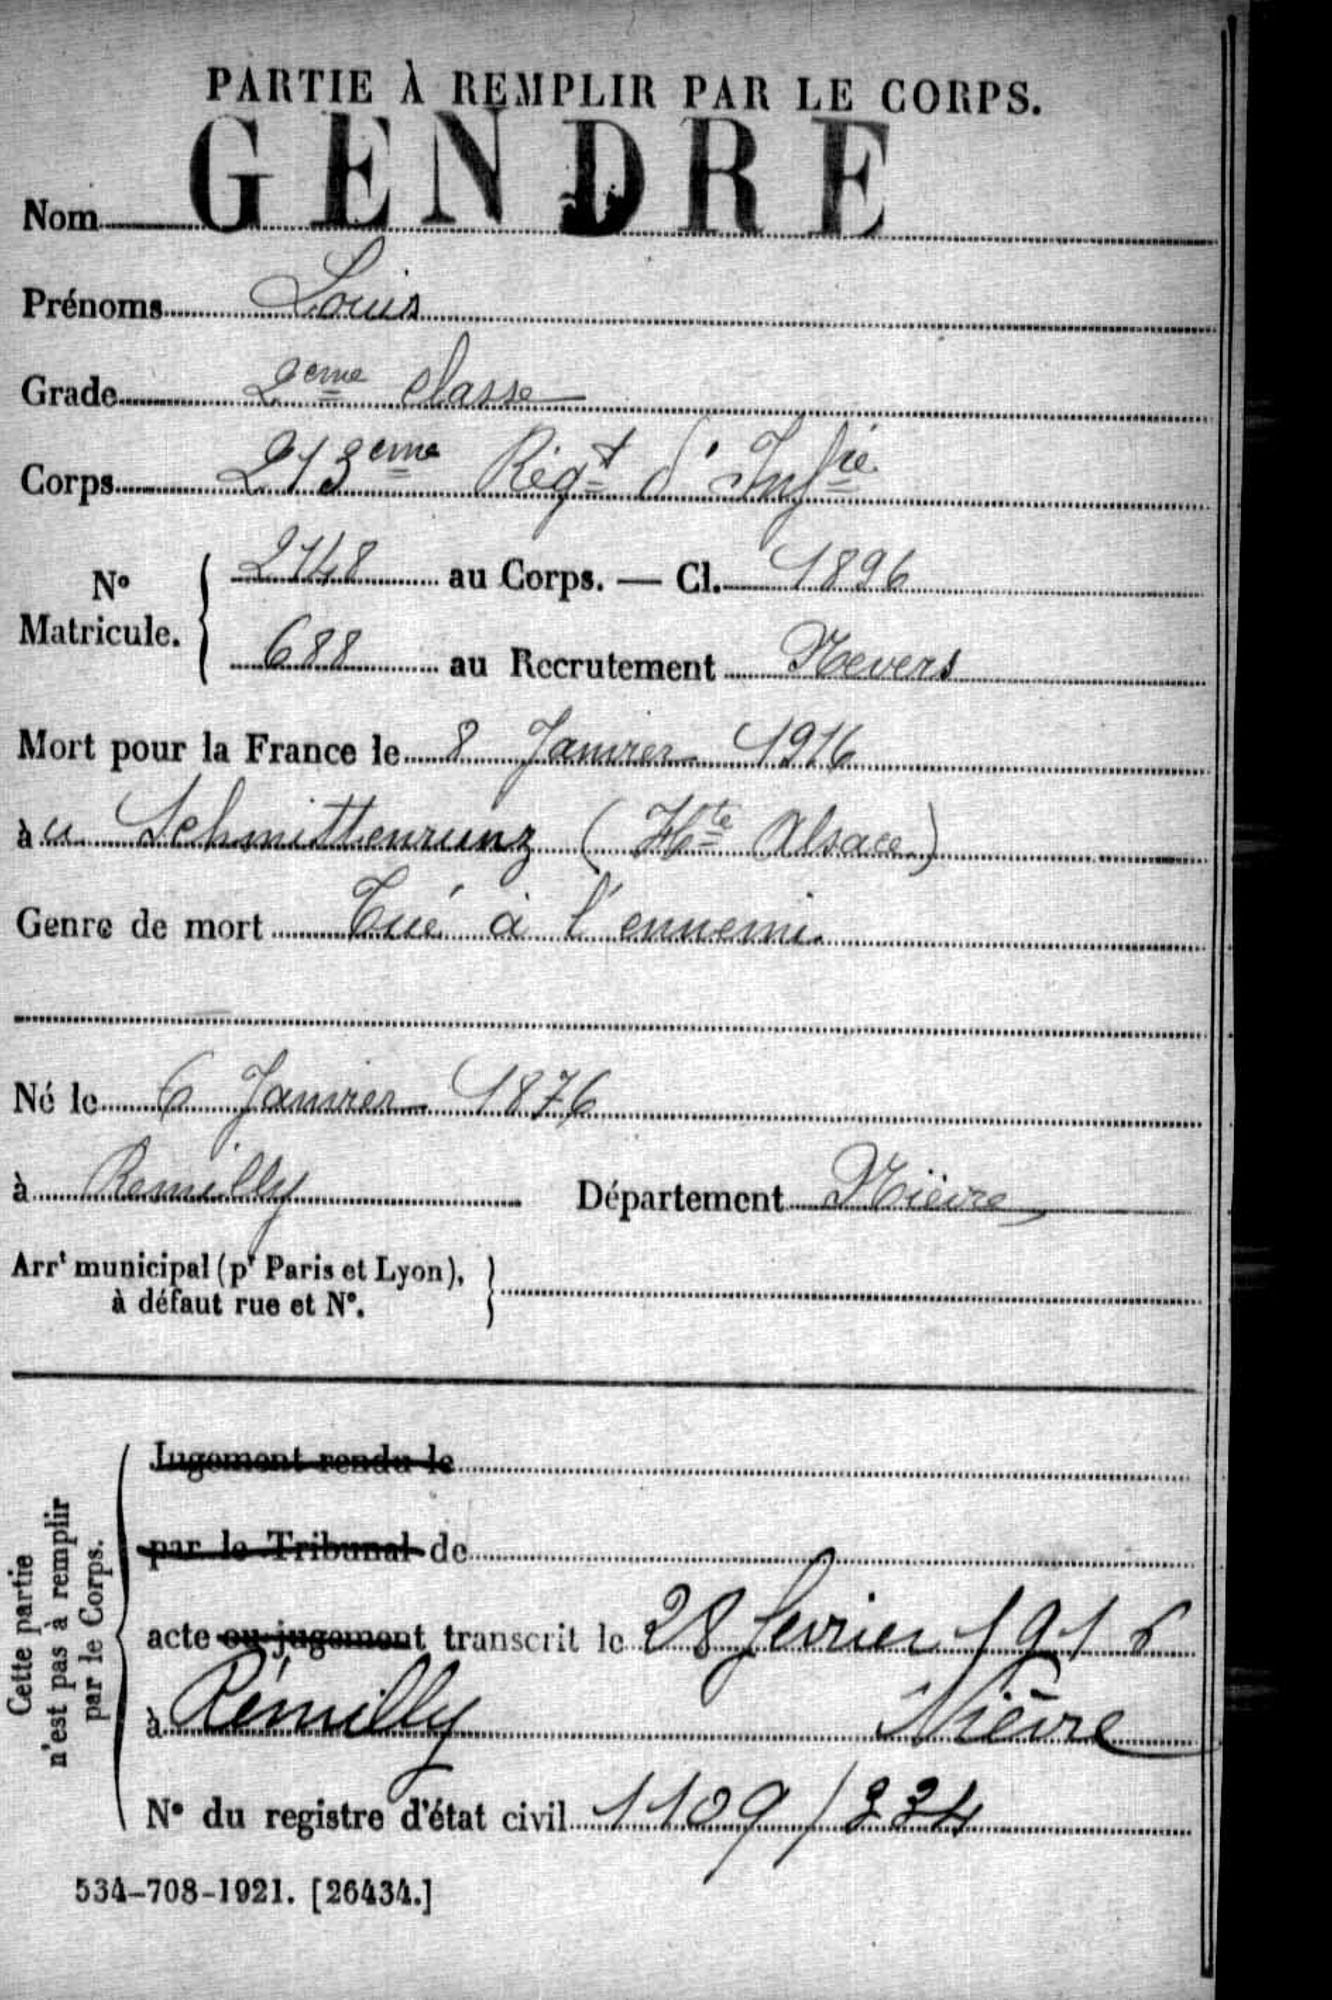 PARTIE À REMPLIR PAR LE CORPS.
Nom GENDRE
Prénoms Louis
Grade 2eme classe
Corps 213eme Régt d'Infie
No Matricule. 2148 au Corps. — Cl. 1896
688 au Recrutement Nevers
Mort pour la France le 8 Janvier 1916
àu Schmittenrunz (Hte Alsace)
Genre de mort Tué à l'ennemi
Né le 6 Janvier 1876
à Remilly Département Nièvre
Arrt municipal (pr Paris et Lyon),
à défaut rue et No.
Cette partie
n'est pas à remplir
par le Corps.
Jugement rendu le
par le Tribunal de
acte ou jugement transcrit le 28 fevrier 1916
à Rémilly Nièvre
No du registre d'état civil 1109/334
534-708-1921. [26434.]